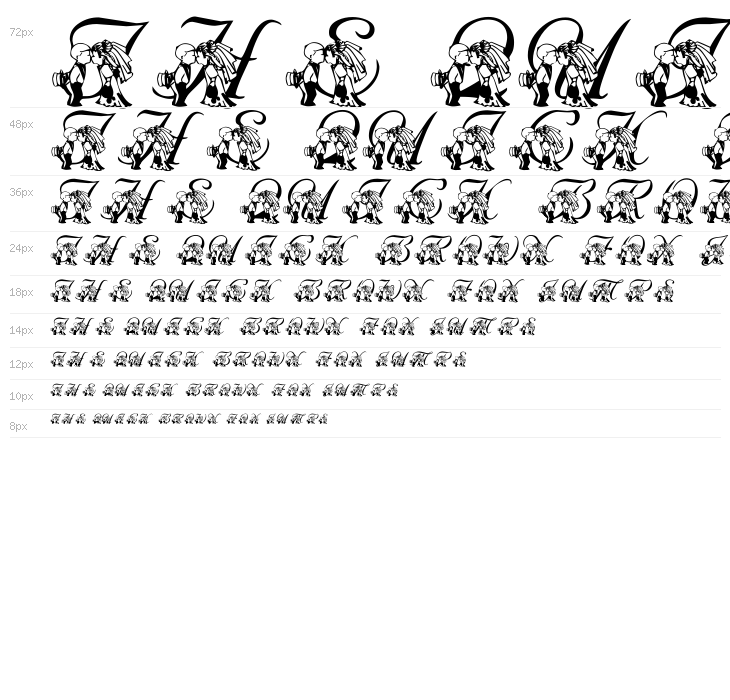 72px THE QUI
48px THE QUICK
36px THE QUICK BRO
24px THE QUICK BROWN FOX
18px THE QUICK BROWN FOX JUMPS
14px THE QUICK BROWN FOX JUMPS
12px THE QUICK BROWN FOX JUMPS
10px THE QUICK BROWN FOX JUMPS
8px THE QUICK BROWN FOX JUMPS